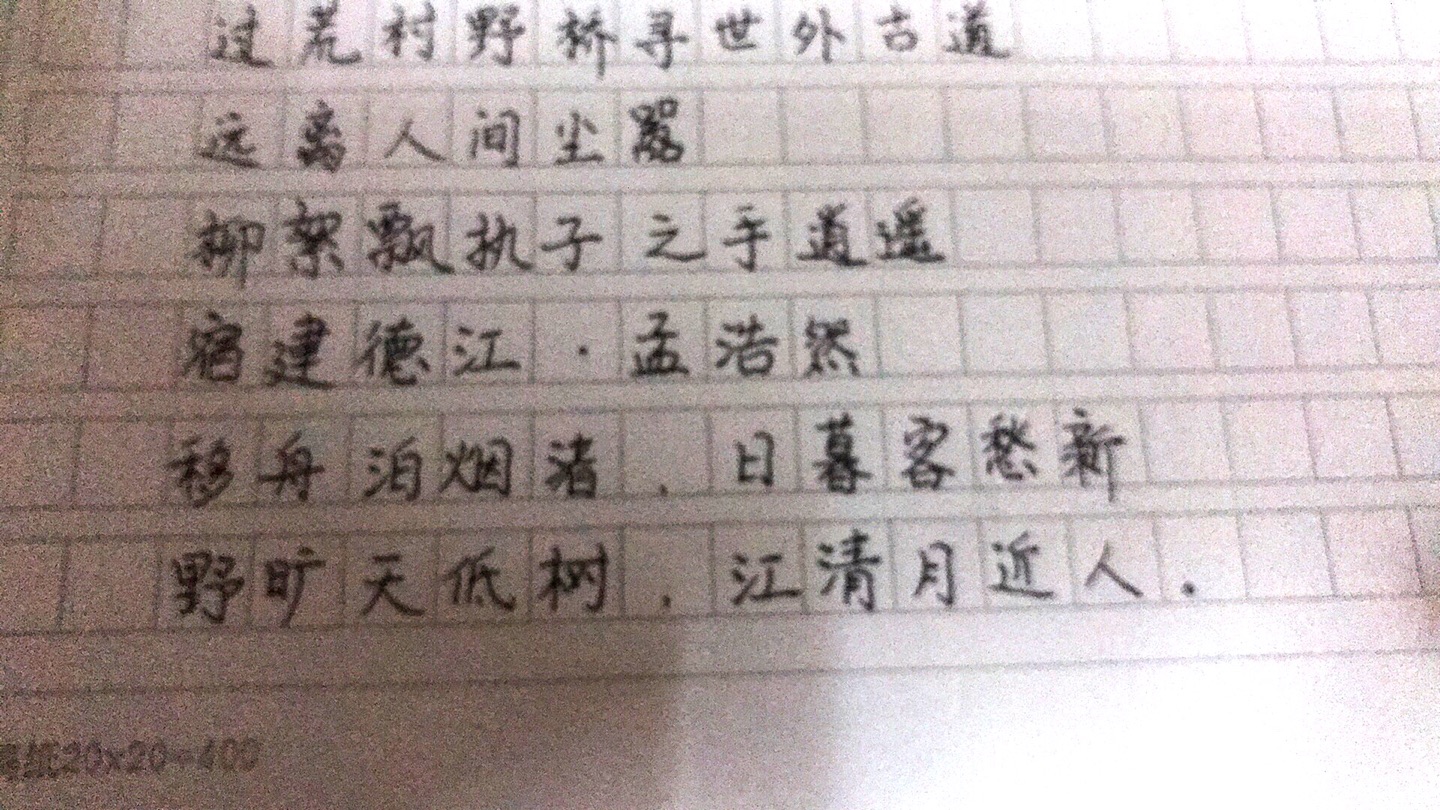 过荒村野桥寻世外古道
远离人间尘嚣
柳絮飘执子之手逍遥
宿建德江·孟浩然
移舟泊烟渚,日暮客愁新
野旷天低树,江清月近人.
纸20x20=400